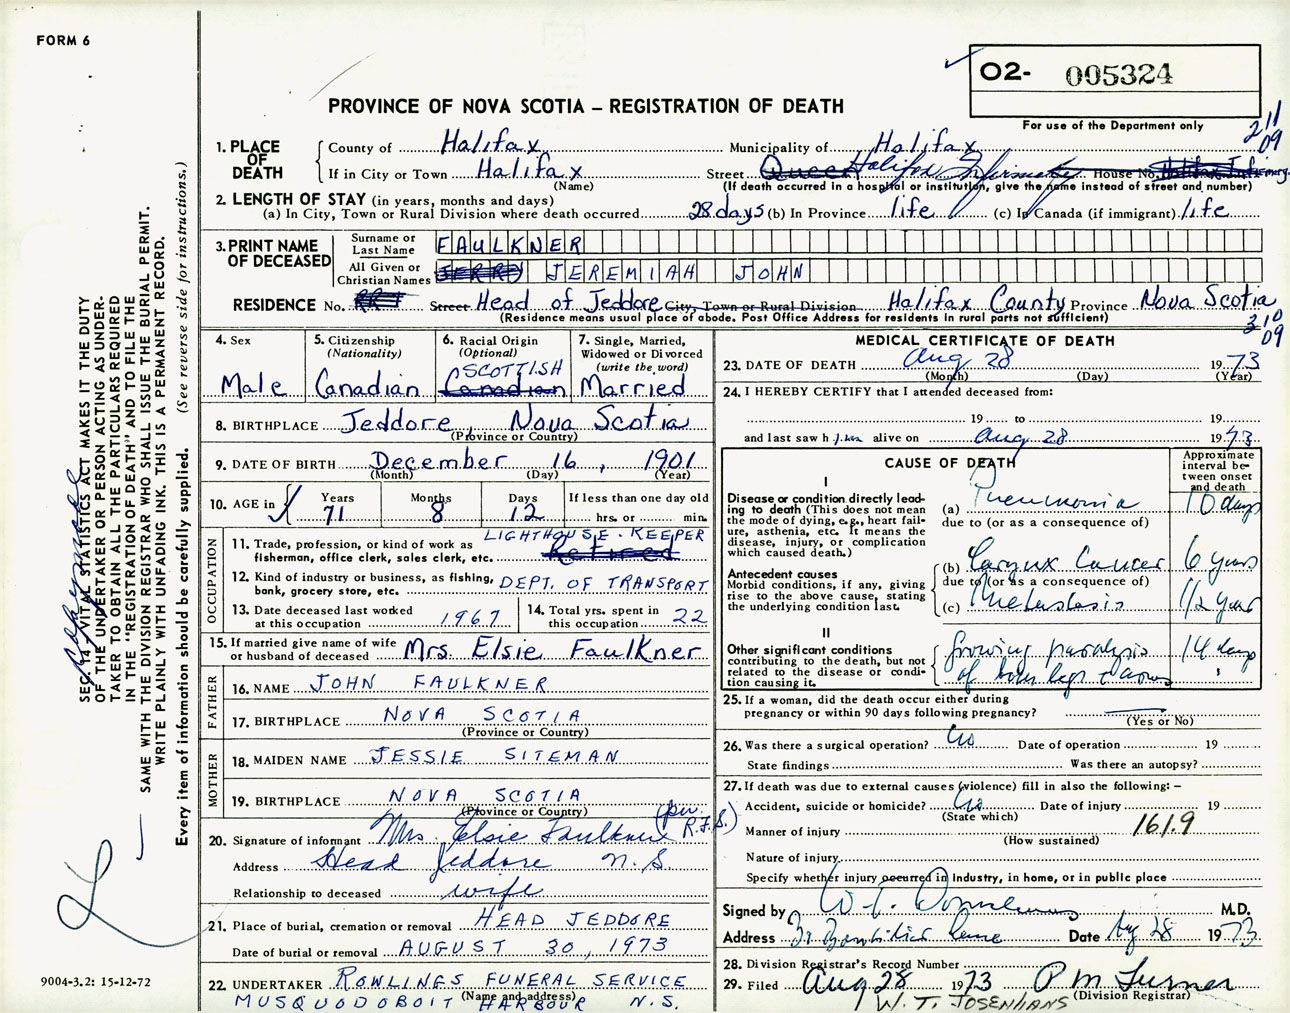 FORM 6
O2- 005324
For use of the Department only
PROVINCE OF NOVA SCOTIA – REGISTRATION OF DEATH
211
09
1. PLACE OF DEATH
County of Halifax Municipality of Halifax
If in City or Town Halifax Street Queen Halifax Infirmary House No. Halifax Infirmary
(Name) (If death occurred in a hospital or institution, give the name instead of street and number)
2. LENGTH OF STAY (in years, months and days)
(a) In City, Town or Rural Division where death occurred 28 days (b) In Province life (c) In Canada (if immigrant) life
3. PRINT NAME OF DECEASED
Surname or Last Name FAULKNER
All Given or Christian Names JERRY JEREMIAH JOHN
RESIDENCE No. RR1 Street Head of Jeddore City, Town or Rural Division Halifax County Province Nova Scotia
(Residence means usual place of abode. Post Office Address for residents in rural parts not sufficient)
310
09
4. Sex
Male
5. Citizenship
(Nationality)
Canadian
6. Racial Origin
(Optional)
SCOTTISH
Canadian
7. Single, Married, Widowed or Divorced
(write the word)
Married
8. BIRTHPLACE Jeddore, Nova Scotia
(Province or Country)
9. DATE OF BIRTH December 16, 1901
(Month) (Day) (Year)
10. AGE in
Years 71
Months 8
Days 12
If less than one day old
hrs. or min.
OCCUPATION
11. Trade, profession, or kind of work as fisherman, office clerk, sales clerk, etc. LIGHTHOUSE-KEEPER
Retired
12. Kind of industry or business, as fishing, bank, grocery store, etc. DEPT. OF TRANSPORT
13. Date deceased last worked at this occupation 1967
14. Total yrs. spent in this occupation 22
15. If married give name of wife or husband of deceased Mrs. Elsie Faulkner
FATHER
16. NAME JOHN FAULKNER
17. BIRTHPLACE NOVA SCOTIA
(Province or Country)
MOTHER
18. MAIDEN NAME JESSIE SITEMAN
19. BIRTHPLACE NOVA SCOTIA
(Province or Country)
20. Signature of informant Mrs. Elsie Faulkner (per R.F.S.)
Address Head Jeddore N.S.
Relationship to deceased wife
21. Place of burial, cremation or removal HEAD JEDDORE
Date of burial or removal AUGUST 30, 1973
22. UNDERTAKER ROWLINGS FUNERAL SERVICE
(Name and address)
MUSQUODOBOIT HARBOUR N.S.
MEDICAL CERTIFICATE OF DEATH
23. DATE OF DEATH Aug 28 1973
(Month) (Day) (Year)
24. I HEREBY CERTIFY that I attended deceased from:
19 to 19
and last saw him alive on Aug 28 1973
CAUSE OF DEATH
Approximate interval between onset and death
I
Disease or condition directly leading to death (This does not mean the mode of dying, e.g., heart failure, asthenia, etc. It means the disease, injury, or complication which caused death.)
(a) Pneumonia 10 days
due to (or as a consequence of)
Antecedent causes
Morbid conditions, if any, giving rise to the above cause, stating the underlying condition last.
(b) Larynx Cancer 6 years
due to (or as a consequence of)
(c) Metastasis 1/2 year
II
Other significant conditions contributing to the death, but not related to the disease or condition causing it.
Growing paralysis 14 days
of both legs + arms "
25. If a woman, did the death occur either during pregnancy or within 90 days following pregnancy?
(Yes or No)
26. Was there a surgical operation? No Date of operation 19
State findings Was there an autopsy?
27. If death was due to external causes (violence) fill in also the following: –
Accident, suicide or homicide? No Date of injury 19
(State which)
Manner of injury 161.9
(How sustained)
Nature of injury
Specify whether injury occurred in Industry, in home, or in public place
Signed by M.D.
Address Date Aug 28 1973
28. Division Registrar's Record Number
29. Filed Aug 28 1973 P M Turner
(Division Registrar)
W.T. JOSENHANS
SEC. 14 VITAL STATISTICS ACT MAKES IT THE DUTY
OF THE UNDERTAKER OR PERSON ACTING AS UNDER-
TAKER TO OBTAIN ALL THE PARTICULARS REQUIRED
IN THE "REGISTRATION OF DEATH" AND TO FILE THE
SAME WITH THE DIVISION REGISTRAR WHO SHALL ISSUE THE BURIAL PERMIT.
WRITE PLAINLY WITH UNFADING INK. THIS IS A PERMANENT RECORD.
Every item of information should be carefully supplied. (See reverse side for instructions.)
9004-3.2: 15-12-72